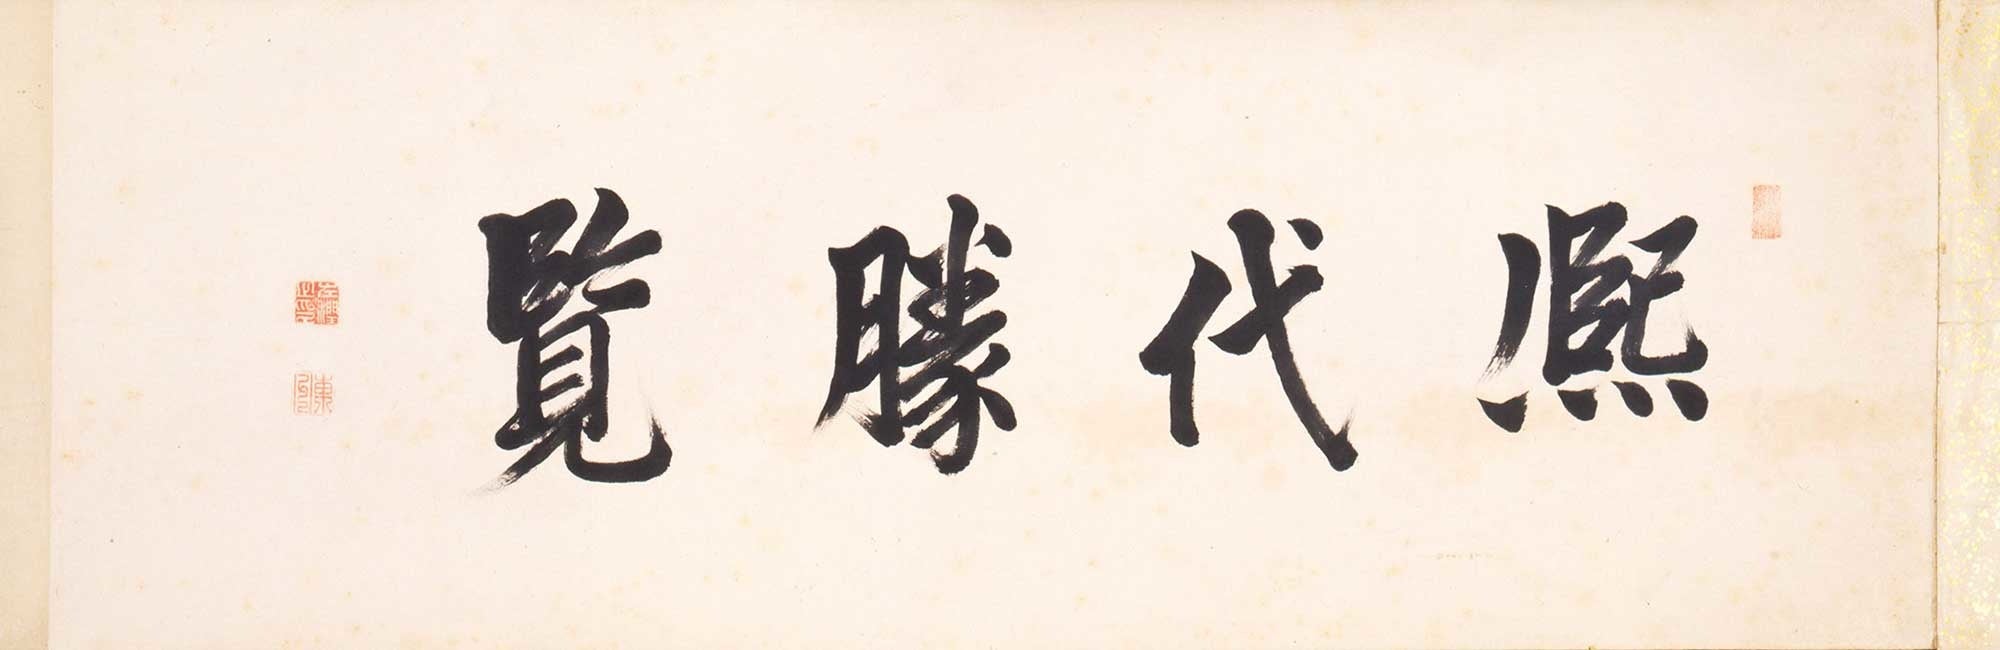 熈代勝覧